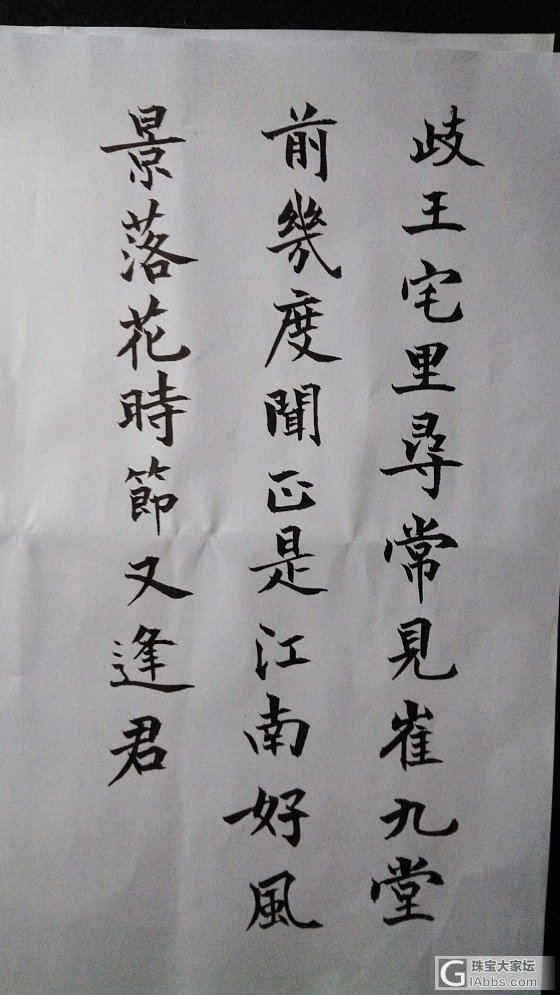 歧王宅里尋常見崔九堂
前幾度聞正是江南好風
景落花時節又逢君
珠宝大家坛
GIAbbs.com